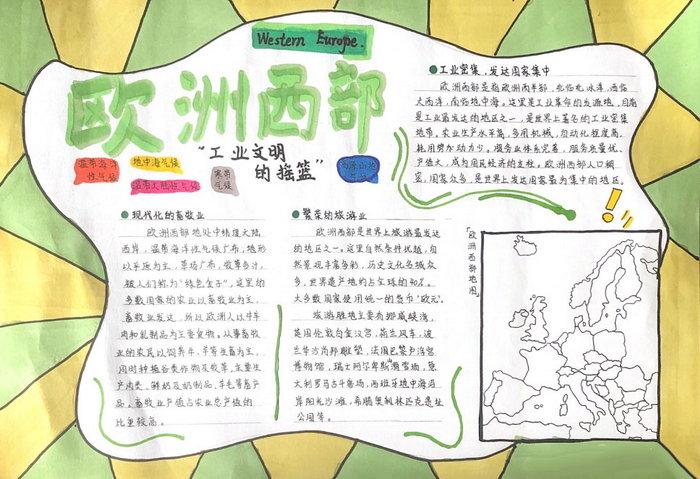 Western Europe.
欧洲西部
“工业文明
的摇篮”
温带海洋
性气候
地中海气候
温带大陆性气候
寒带
气候
高原山地
气候
工业密集,发达国家集中
欧洲西部是指欧洲西半部,北临北冰洋,西临
大西洋,南临地中海。这里是工业革命的发源地,目前
是工业最发达的地区之一,是世界上著名的工业密集
地带。农业生产水平高,多用机械,自动化程度高,
耗用劳动力少。服务业体系完善,服务质量优、
产值大,成为国民经济的主体。欧洲西部人口稠
密,国家众多,是世界上发达国家最为集中的地区。
现代化的畜牧业
欧洲西部地处中纬度大陆
西岸,温带海洋性气候广布,地形
以平原为主,草场广布,牧草多汁,
被人们称为“绿色金子”,这里的
多数国家的农业以畜牧业为主,
畜牧业发达,所以欧洲人以牛羊
肉和乳制品为主要食物。从事畜牧
业的农民以饲养牛、羊等牲畜为主,
同时种植各类作物及牧草,主要生
产肉类、鲜奶及奶制品,羊毛等畜产
品。畜牧业产值占农业总产值的
比重较高。
繁荣的旅游业
欧洲西部是世界上旅游最发达
的地区之一。这里自然条件优越,自
然景观丰富多彩,历史文化名城众
多,世界遗产地约占全球的40%。
大多数国家使用统一的货币“欧元”。
旅游胜地主要有挪威峡湾,
英国伦敦白金汉宫,荷兰风车,波
兰华沙肖邦雕塑,法国巴黎卢浮宫
博物馆,瑞士阿尔卑斯滑雪场,意
大利罗马古斗兽场,西班牙地中海沿
岸阳光沙滩,希腊奥林匹克遗址
公园等。
「欧洲西部地图」